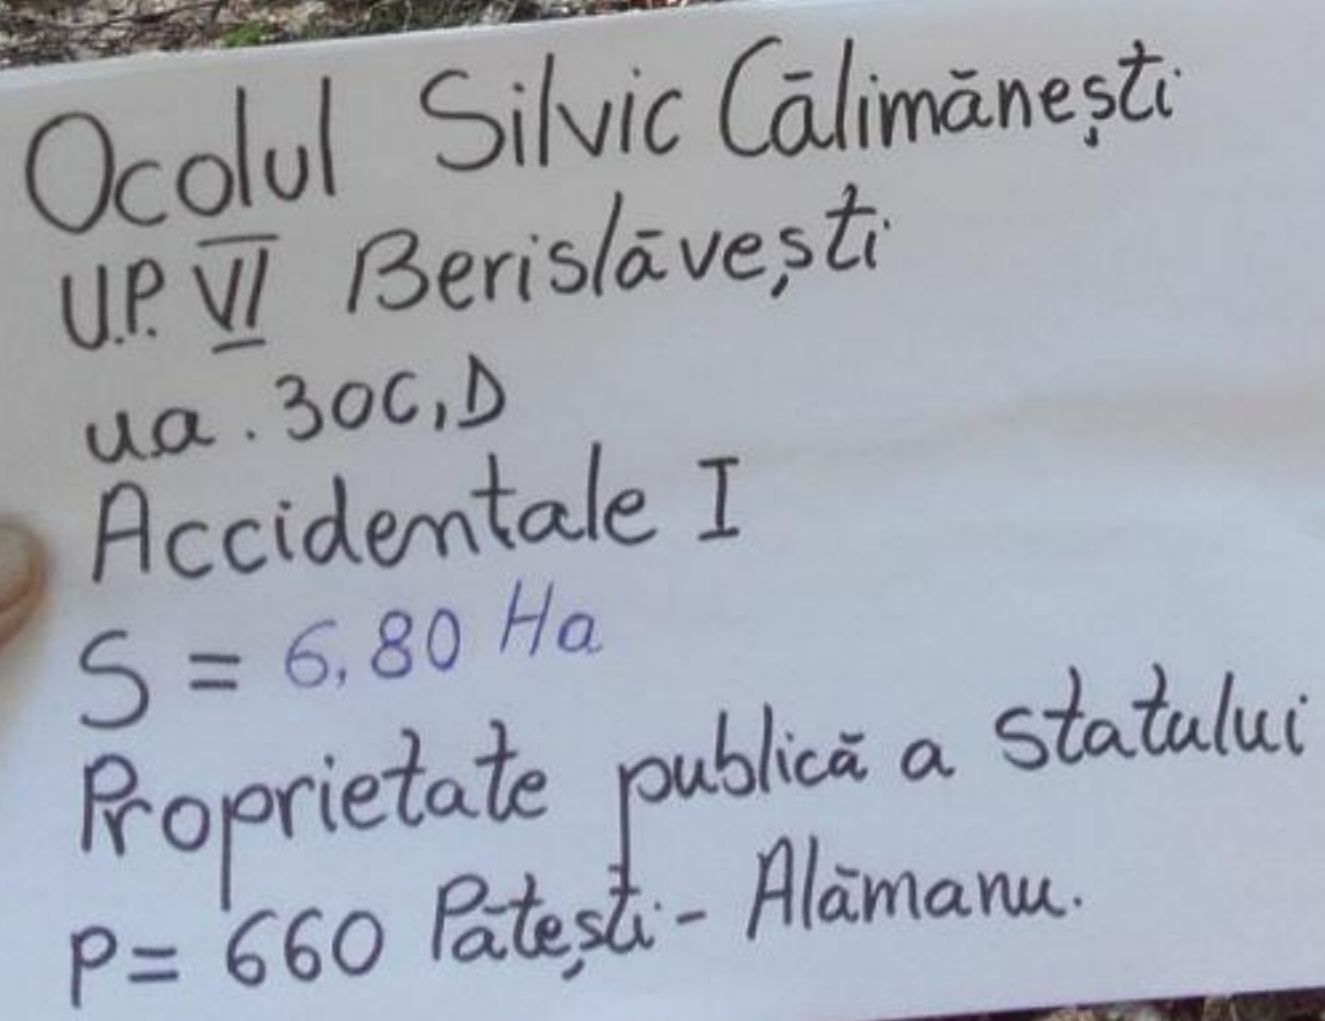 Ocolul Silvic Călimănești
U.P. VI Berislăvești
ua. 30C, D
Accidentale I
S = 6,80 Ha
Proprietate publică a statului
P = 660 Pătești - Alămanu.